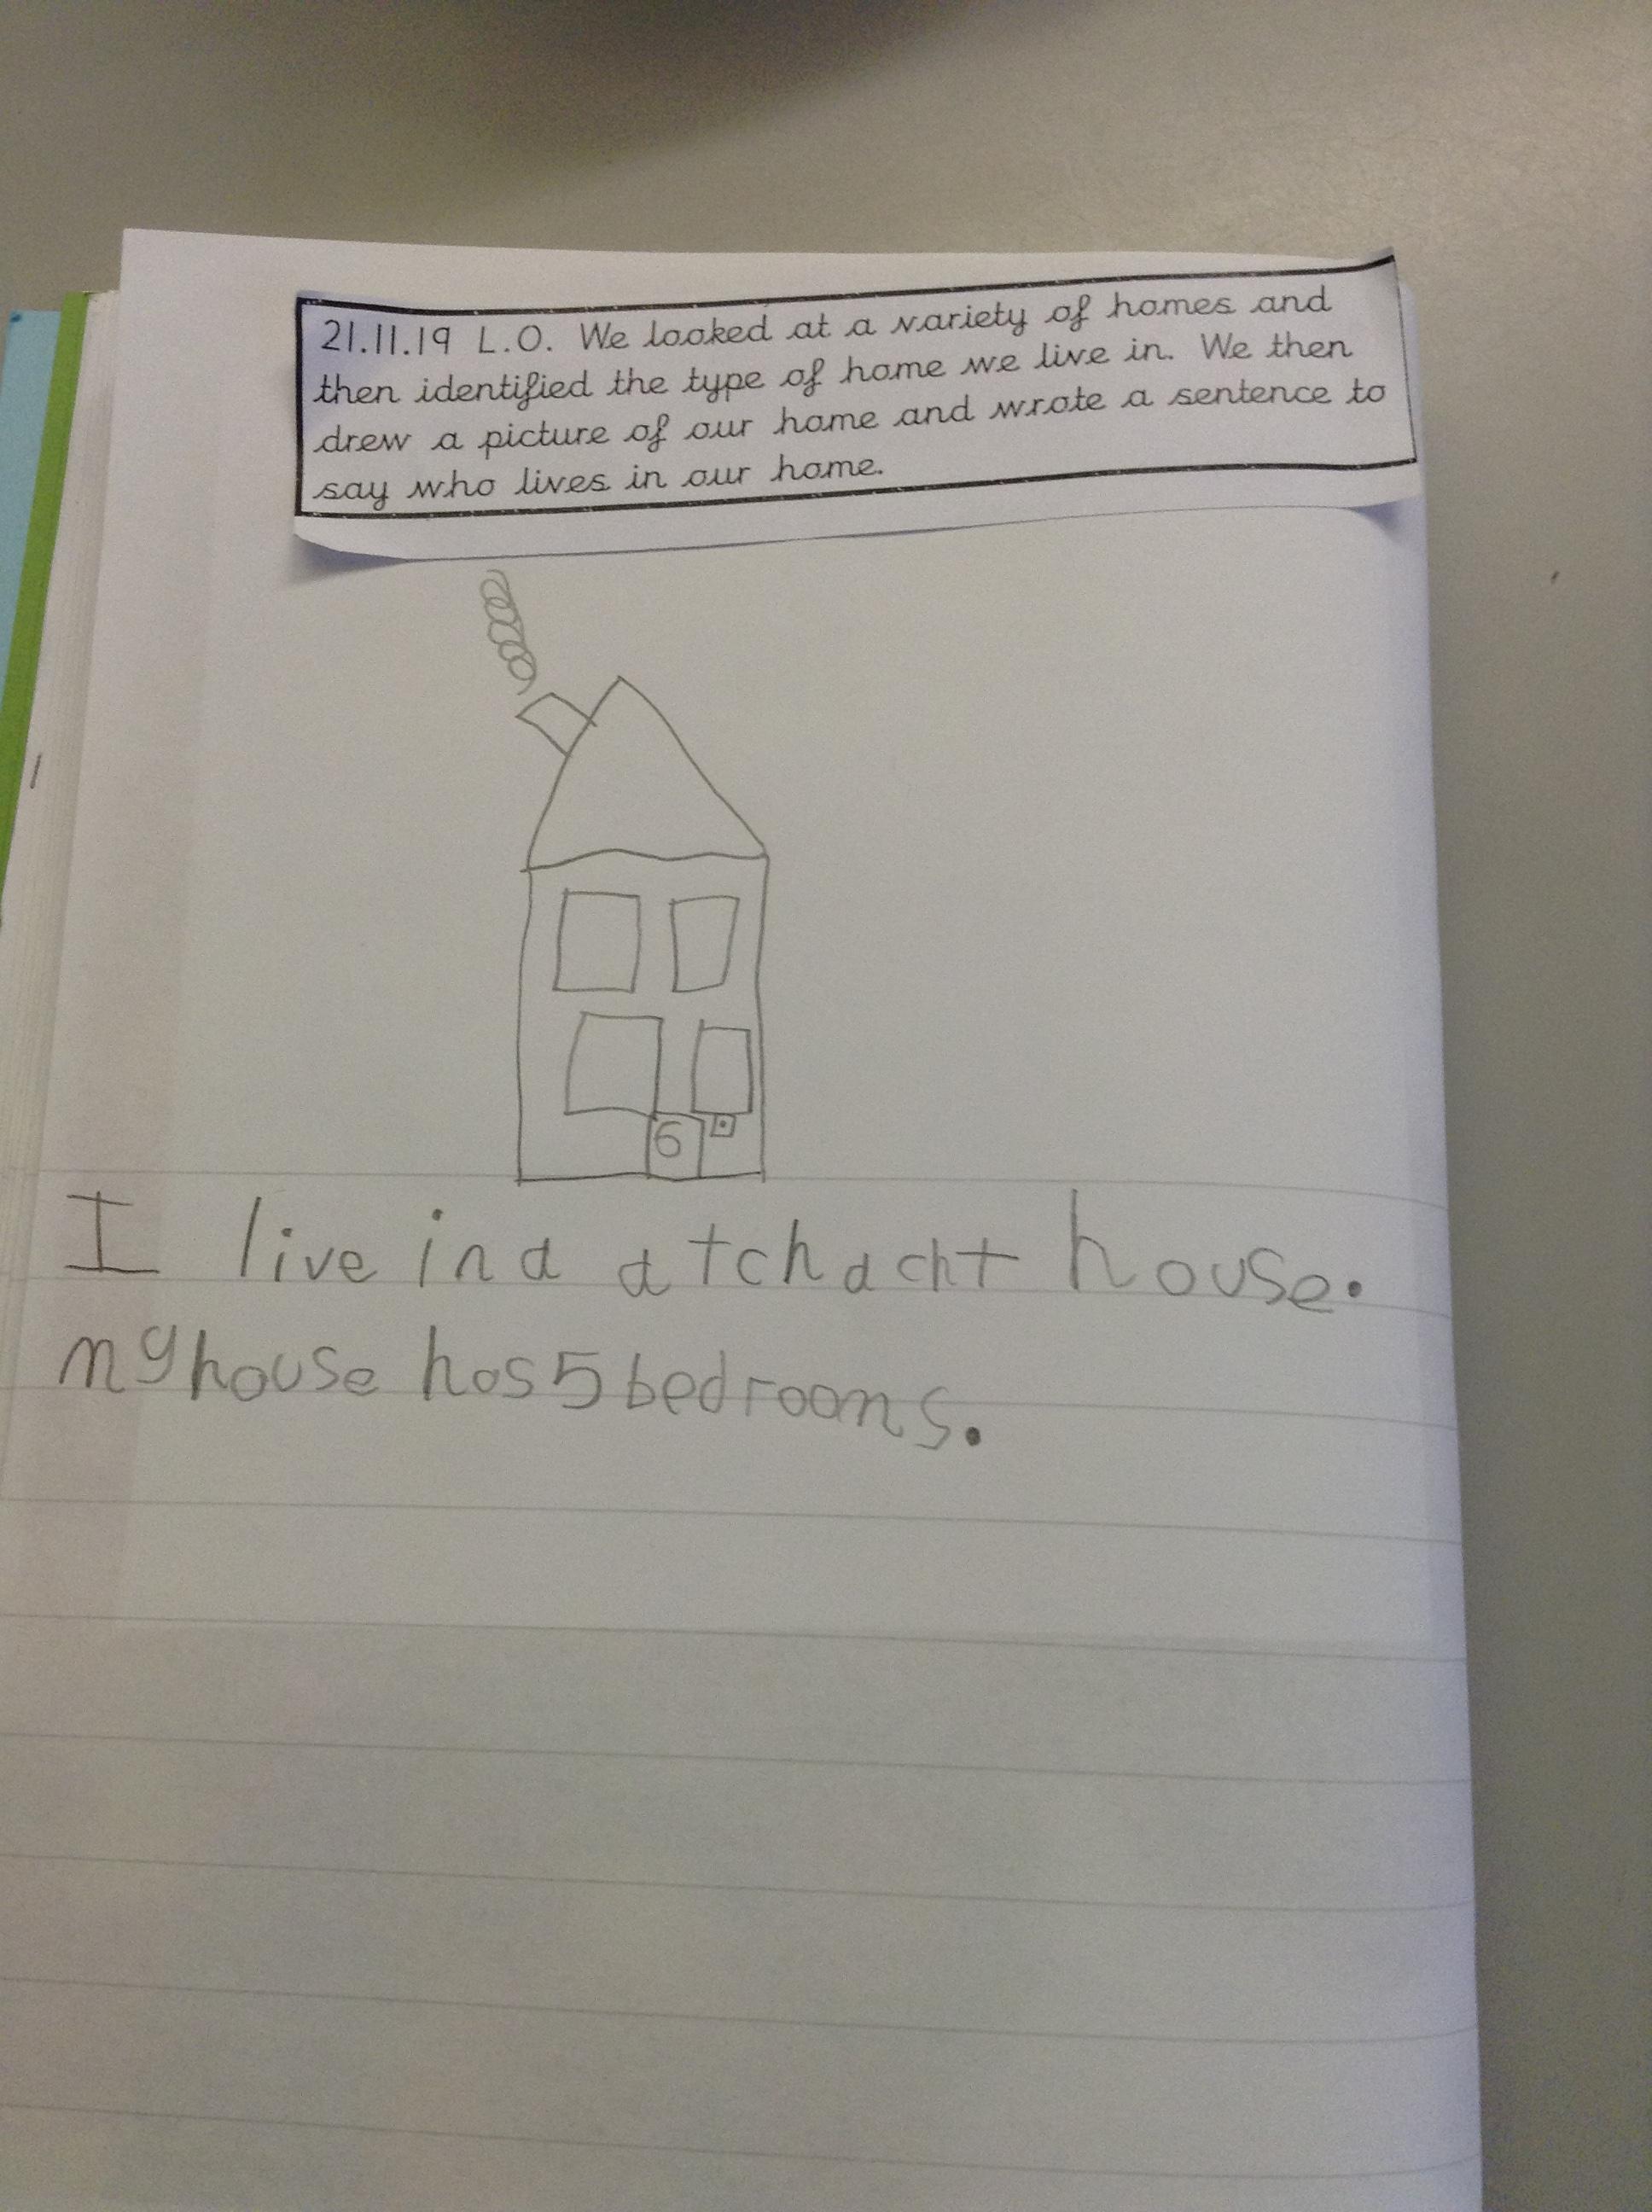 21.11.19 L.O. We looked at a variety of homes and
then identified the type of home we live in. We then
drew a picture of our home and wrote a sentence to
say who lives in our home.
6
I live in a atchacht house.
my house has 5 bedrooms.